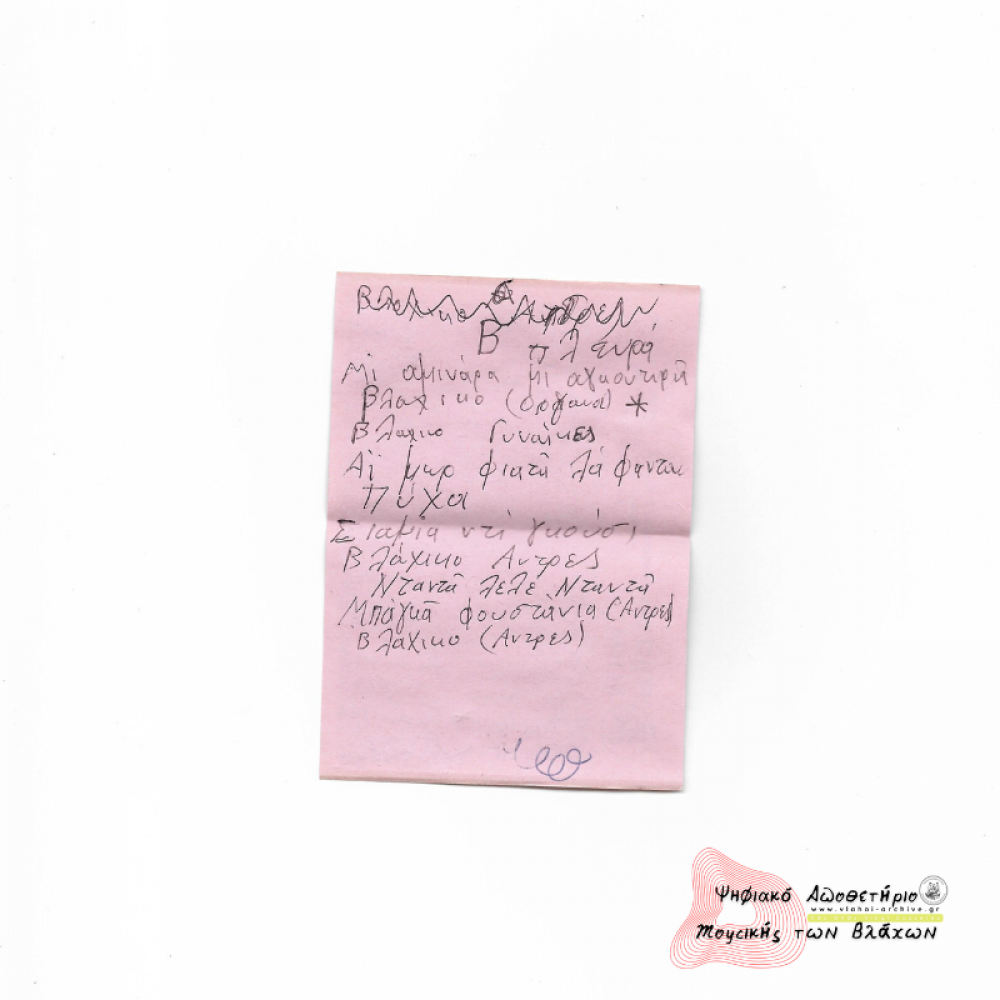 Βλαχικο
Β πλευρά
Μι αμινάρα μι αγκουτιρα
Βλαχικο (όργανα) *
Βλαχικο Γυναίκες
Αϊ μωρ φιατα λά φαντα
Πύχα
Σ ιαμια ντι γκούσι
Βλάχικο Αντρες
Νταντα λελε Νταντα
Μπάγκα φουστάνια (Αντρες)
Βλαχικο (Αντρες)
Ψηφιακό Αποθετήριο
www.vlahoi-archive.gr
Μουσικής των Βλάχων